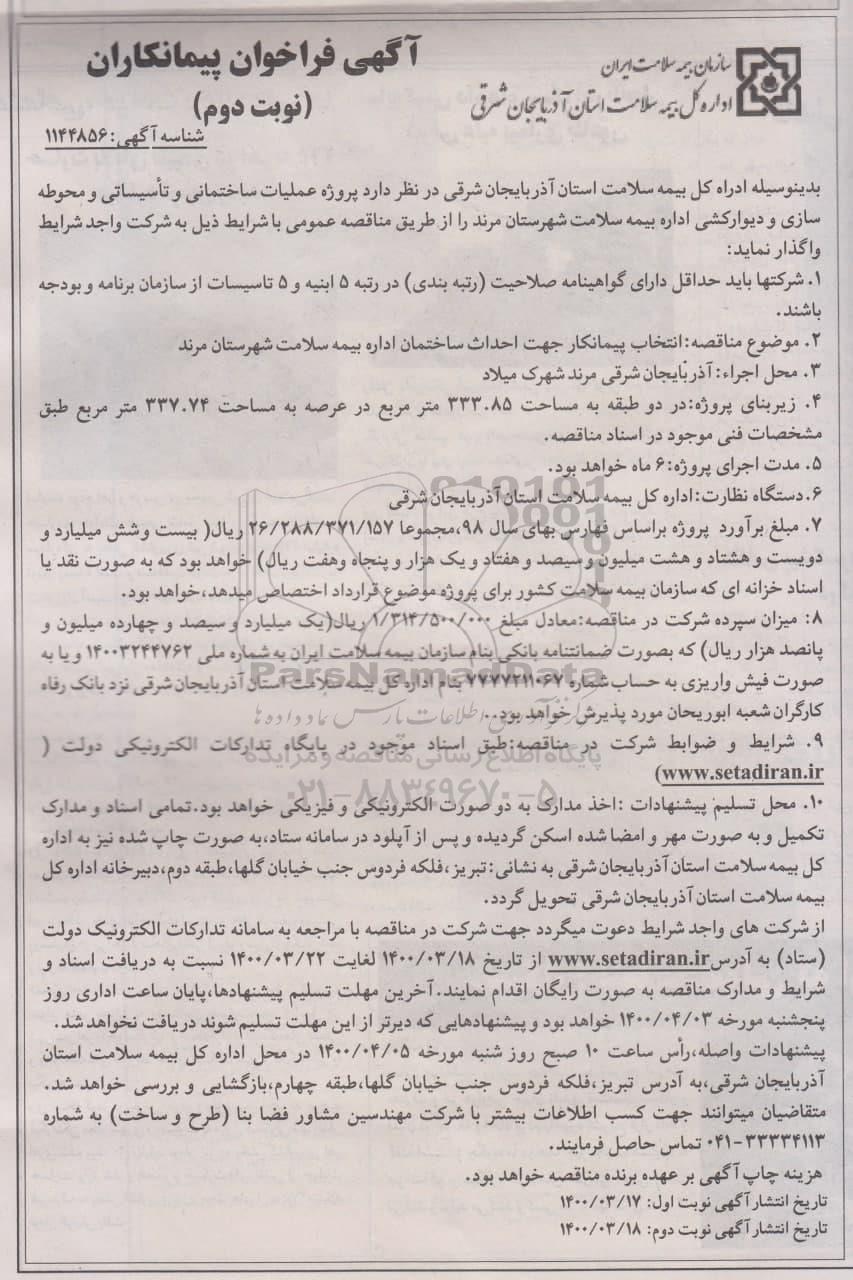 آگهی فراخوان پیمانکاران
(نوبت دوم)
شناسه آگهی: ۱۱۴۴۸۵۶
سازمان بیمه سلامت ایران
اداره کل بیمه سلامت استان آذربایجان شرقی
بدینوسیله ادراه کل بیمه سلامت استان آذربایجان شرقی در نظر دارد پروژه عملیات ساختمانی و تأسیساتی و محوطه
سازی و دیوارکشی اداره بیمه سلامت شهرستان مرند را از طریق مناقصه عمومی با شرایط ذیل به شرکت واجد شرایط
واگذار نماید:
۱. شرکتها باید حداقل دارای گواهینامه صلاحیت (رتبه بندی) در رتبه ۵ ابنیه و ۵ تاسیسات از سازمان برنامه و بودجه
باشند.
۲. موضوع مناقصه:انتخاب پیمانکار جهت احداث ساختمان اداره بیمه سلامت شهرستان مرند
۳. محل اجراء: آذربایجان شرقی مرند شهرک میلاد
۴. زیربنای پروژه:در دو طبقه به مساحت ۳۳۳.۸۵ متر مربع در عرصه به مساحت ۳۳۷.۷۴ متر مربع طبق
مشخصات فنی موجود در اسناد مناقصه.
۵. مدت اجرای پروژه:۶ ماه خواهد بود.
۶.دستگاه نظارت:اداره کل بیمه سلامت استان آذربایجان شرقی
۷. مبلغ برآورد پروژه براساس فهارس بهای سال ۹۸،مجموعا ۲۶/۲۸۸/۳۷۱/۱۵۷ ریال( بیست وشش میلیارد و
دویست و هشتاد و هشت میلیون و سیصد و هفتاد و یک هزار و پنجاه وهفت ریال) خواهد بود که به صورت نقد یا
اسناد خزانه ای که سازمان بیمه سلامت کشور برای پروژه موضوع قرارداد اختصاص میدهد،خواهد بود.
۸: میزان سپرده شرکت در مناقصه:معادل مبلغ ۱/۳۱۴/۵۰۰/۰۰۰ ریال(یک میلیارد و سیصد و چهارده میلیون و
پانصد هزار ریال) که بصورت ضمانتنامه بانکی بنام سازمان بیمه سلامت ایران به شماره ملی ۱۴۰۰۳۲۴۴۷۶۲ و یا به
صورت فیش واریزی به حساب شماره ۷۷۷۷۲۱۱۰۶۷ بنام اداره کل بیمه سلامت استان آذربایجان شرقی نزد بانک رفاه
کارگران شعبه ابوریحان مورد پذیرش خواهد بود..
۹. شرایط و ضوابط شرکت در مناقصه:طبق اسناد موجود در پایگاه تدارکات الکترونیکی دولت (
www.setadiran.ir)
۱۰. محل تسلیم پیشنهادات :اخذ مدارک به دو صورت الکترونیکی و فیزیکی خواهد بود.تمامی اسناد و مدارک
تکمیل و به صورت مهر و امضا شده اسکن گردیده و پس از آپلود در سامانه ستاد،به صورت چاپ شده نیز به اداره
کل بیمه سلامت استان آذربایجان شرقی به نشانی:تبریز،فلکه فردوس جنب خیابان گلها،طبقه دوم،دبیرخانه اداره کل
بیمه سلامت استان آذربایجان شرقی تحویل گردد.
از شرکت های واجد شرایط دعوت میگردد جهت شرکت در مناقصه با مراجعه به سامانه تدارکات الکترونیک دولت
(ستاد) به آدرس www.setadiran.ir از تاریخ ۱۴۰۰/۰۳/۱۸ لغایت ۱۴۰۰/۰۳/۲۲ نسبت به دریافت اسناد و
شرایط و مدارک مناقصه به صورت رایگان اقدام نمایند.آخرین مهلت تسلیم پیشنهادها،پایان ساعت اداری روز
پنجشنبه مورخه ۱۴۰۰/۰۴/۰۳ خواهد بود و پیشنهادهایی که دیرتر از این مهلت تسلیم شوند دریافت نخواهد شد.
پیشنهادات واصله،رأس ساعت ۱۰ صبح روز شنبه مورخه ۱۴۰۰/۰۴/۰۵ در محل اداره کل بیمه سلامت استان
آذربایجان شرقی،به آدرس تبریز،فلکه فردوس جنب خیابان گلها،طبقه چهارم،بازگشایی و بررسی خواهد شد.
متقاضیان میتوانند جهت کسب اطلاعات بیشتر با شرکت مهندسین مشاور فضا بنا (طرح و ساخت) به شماره
۰۴۱-۳۳۳۳۴۱۱۳ تماس حاصل فرمایند.
هزینه چاپ آگهی بر عهده برنده مناقصه خواهد بود.
تاریخ انتشار آگهی نوبت اول: ۱۴۰۰/۰۳/۱۷
تاریخ انتشار آگهی نوبت دوم: ۱۴۰۰/۰۳/۱۸
ParsNamadData
پایگاه اطلاع رسانی مناقصه و مزایده
۰۲۱-۸۸۳۴۹۶۷۰-۵